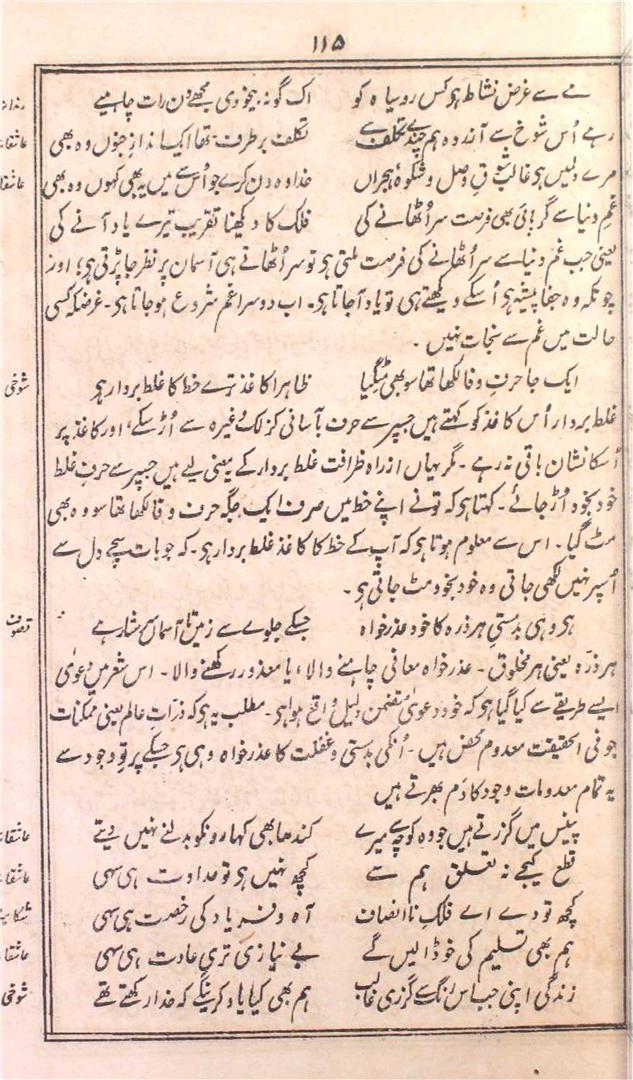 ۱۱۵
مے سے غرض نشاط ہو کس روسیاہ کو اک گونہ بیخودی مجھے دن رات چاہیے رندانہ
رہے اُس شوخ سے آزردہ ہم چندے تکلف سے تکلف برطرف تھا ایک اندازِ جنوں وہ بھی
مرے دلمیں ہی غالب شوقِ وصل و شکوۂ ہجراں خدا وہ دن کرے جو اُس سے میں یہ بھی کہوں وہ بھی
غمِ دنیا سے گر پائی بھی فرصت سر اُٹھانے کی فلک کا دیکھنا تقریب تیرے یاد آنے کی
یعنی جب غم دنیا سے سر اُٹھانے کی فرصت ملتی ہی تو سر اُٹھاتے ہی آسمان پر نظر جا پڑتی ہی؛ اور
چونکہ وہ جفا پیشہ ہی اُسکے دیکھتے ہی تو یاد آجاتا ہی۔ اب دوسرا غم شروع ہو جاتا ہی۔ غرضکہ کسی
حالت میں غم سے نجات نہیں ۔
ایک جا حرفِ وفا لکھا تھا سو بھی مٹ گیا ظاہرا کاغذ ترے خط کا غلط بردار ہی شوخی
غلط بردار اُس کاغذ کو کہتے ہیں جسپر سے حرف بآسانی کزلک وغیرہ سے اُڑ سکے، اور کاغذ پر
اُسکا نشان باقی نہ رہے ۔ مگر یہاں از راہ ظرافت غلط بردار کے یہ معنی لیے ہیں جسپر سے حرفِ غلط
خود بخود اُڑ جائے ۔ کہتا ہی کہ تونے اپنے خط میں صرف ایک جگہ حرف وفا لکھا تھا سو وہ بھی
مٹ گیا ۔ اس سے معلوم ہوتا ہی کہ آپ کے خط کا کاغذ غلط بردار ہی ۔ کہ جو بات سچے دل سے
اُسپر نہیں لکھی جاتی وہ خود بخود مٹ جاتی ہی ۔
ہی وہی بدمستیِ ہر ذرہ کا خود عذر خواہ جسکے جلوے سے زمیں تا آسماں سرشار ہے تصوف
ہر ذرّہ یعنی ہر مخلوق ۔ عذر خواہ معافی چاہنے والا، یا معذور رکھنے والا ۔ اس شعر میں دعویٰ
ایسے طریقے سے کیا گیا ہی کہ خود دعویٰ متضمن دلیل واقع ہوا ہی ۔ مطلب یہ ہی کہ ذراتِ عالم یعنی ممکنات
جو فی الحقیقت معدوم محض ہیں ۔ اُنکی بدمستی و غفلت کا عذر خواہ وہی ہی جسکے پرتوِ وجود سے
یہ تمام معدومات وجود کا دَم بھرتے ہیں
پینس میں گزرتے ہیں جو وہ کوچے سے میرے کندھا بھی کہارونکو بدلنے نہیں دیتے
قطع کیجے نہ تعلق ہم سے کچھ نہیں ہی تو عداوت ہی سہی
کچھ تو دے اے فلکِ نا انصاف آہ و فریاد کی رخصت ہی سہی
ہم بھی تسلیم کی خو ڈالیں گے بے نیازی تری عادت ہی سہی
زندگی اپنی جب اس رنگ سے گزری غالب ہم بھی کیا یاد کرینگے کہ خدا رکھتے تھے شوخی